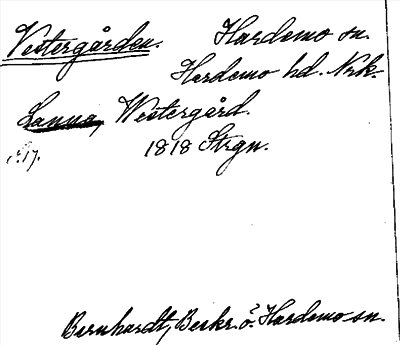 Vestergården. Hardemo sn.
Hardemo hd. Nrk.
Lanna, Westergård.
s. 17. 1818 Strgn.
Bernhardt, Beskr. ö. Hardemo sn.